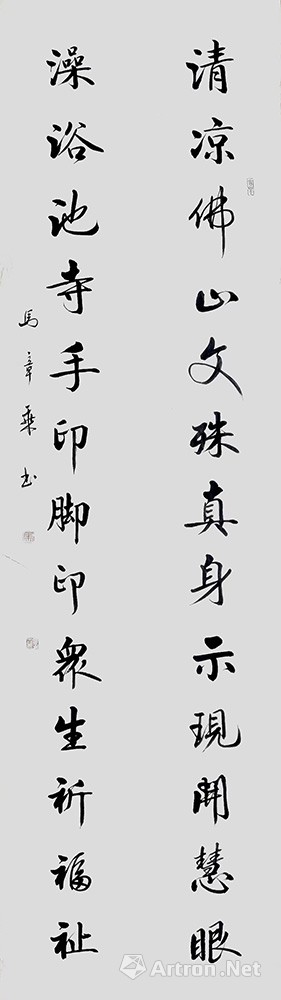 清凉佛山文殊真身示現開慧眼
澡浴池寺手印脚印衆生祈福祉
馬章乘书
Artron.Net